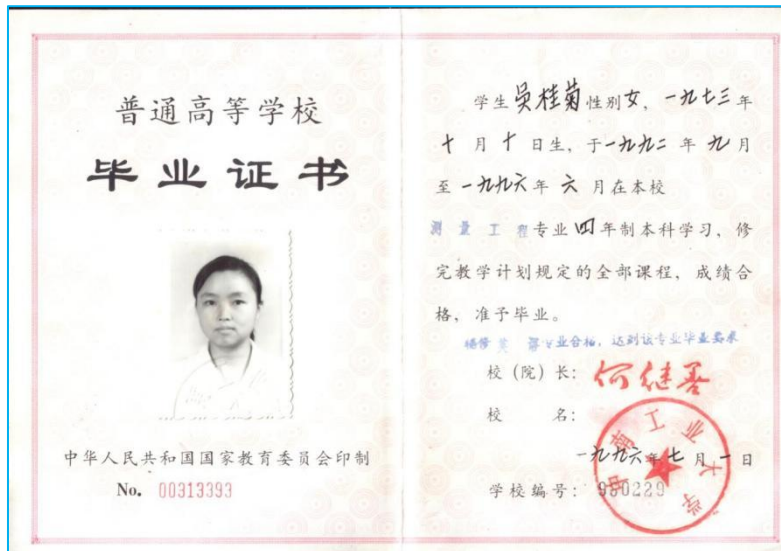 普通高等学校
毕业证书
中华人民共和国国家教育委员会印制
No. 00313393
学生员桂菊性别女,一九七三年
十月十日生,于一九九二年九月
至一九九六年六月在本校
测量工程专业四年制本科学习,修
完教学计划规定的全部课程,成绩合
格,准予毕业。
业合格,达到该专业毕业要求
校(院)长:何继善
校名:
中南工业大学
一九九六年七月一日
学校编号:960229